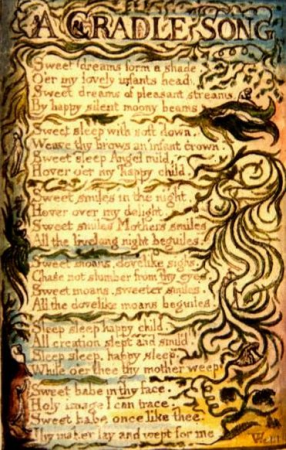 A CRADLE SONG
Sweet dreams form a shade.
O'er my lovely infants head.
Sweet dreams of pleasant streams.
By happy silent moony beams
Sweet sleep with soft down.
Weave thy brows an infant crown.
Sweet sleep Angel mild,
Hover o'er my happy child.
Sweet smiles in the night.
Hover over my delight.
Sweet smiles Mothers smiles
All the livelong night beguiles.
Sweet moans, dovelike sighs,
Chase not slumber from thy eyes.
Sweet moans, sweeter smiles
All the dovelike moans beguiles.
Sleep sleep happy child.
All creation slept and smil'd.
Sleep sleep, happy sleep,
While o'er thee thy mother weep
Sweet babe in thy face,
Holy image I can trace.
Sweet babe once like thee
Thy maker lay and wept for me